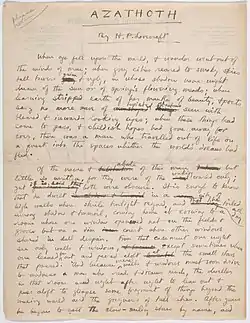 AZATHOTH
By H. P. Lovecraft
When age fell upon the world, & wonder went out of
the minds of men; when grey cities reared to smoky skies
tall towers grim & ugly, in whose shadow none might
dream of the sun or of spring's flowering meads; when
learning stripped earth of her mantle of beauty, & poets
sang no more of
bleared & inward-looking eyes; when these things had
come to pass, & childish hopes had gone away for-
ever, there was a man who travelled out of life on
a quest into the spaces whither the world's dreams had
fled.
Of the name & abode of this man but
little is written, for they were of the waking world only; yet
it is said that both were obscure. It is enough to know
that he
walls where sterile twilight reigned, and
among shadow & turmoil, coming home at evening to a
room whose one window opened not on the fields &
groves but on a dim court where other windows
stared in dull despair. From that casement one might
see only walls & windows, except sometimes when
one leaned out and peered at the small stars
that passed. And because walls & windows must soon drive
to madness a man who
in that room used night after night to lean out and
peer aloft to glimpse some fragment of things beyond the
waking world and the greyness of tall cities. After years
he began to call the slow-sailing stars by name, and